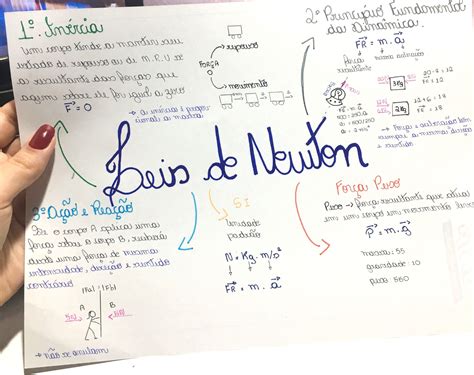 1º. Inércia
Um corpo tende a manter seu
estado de repouso ou de M.R.U se
a resultante das forças que
agem sobre ele for igual a zero
F = 0
→ a inércia é
a
repouso
FORÇA
movimento
2º Princípio Fundamental
da Dinâmica
FR = m.a
força
Resultante
massa
FR = m.a
3kg
2kg
→ Força e aceleração tem
sempre a mesma direção
e sentido
Leis de Newton
3º Ação e Reação
Se o corpo A aplicar uma
força sobre o corpo B, receberá
deste uma força de mesma
intensidade, direção e sentido
contrário
|FBA| |FAB|
A B
→ não se anulam
SI
unidade
padrão
N = Kg.m/s²
FR = m.a
Força Peso
Peso → força resultante que atua
em um corpo em movimento
P = m.g
massa: 55
gravidade: 10
peso: 550